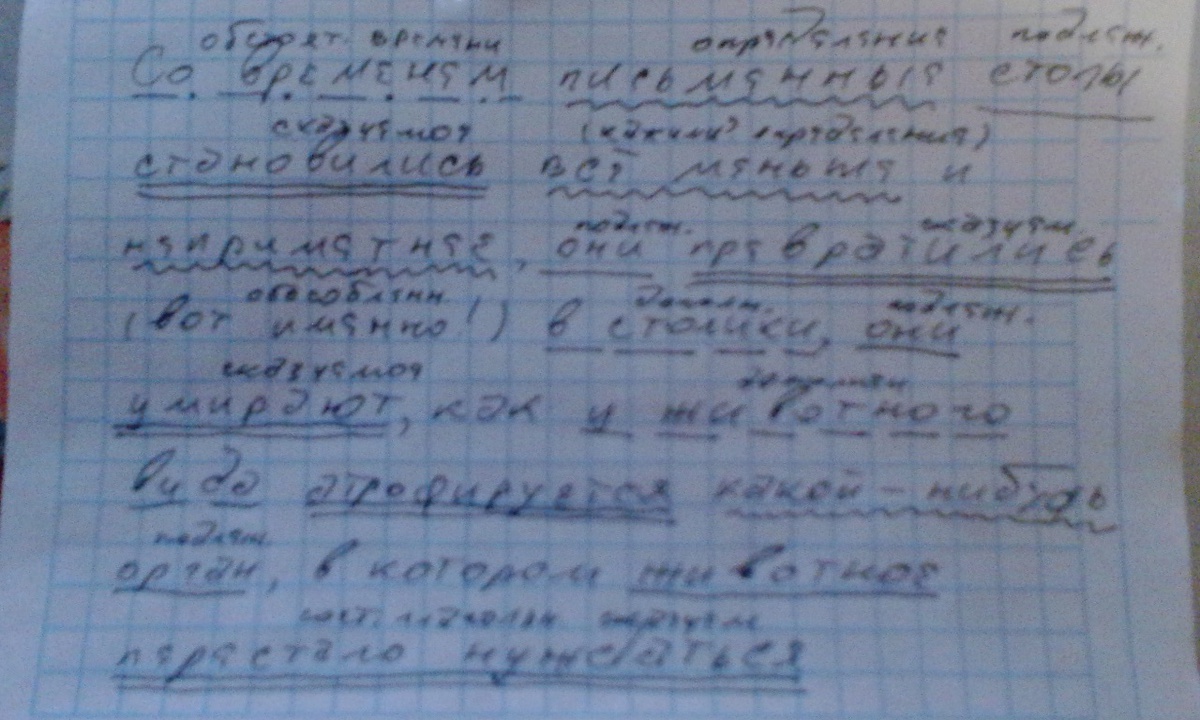 обстоят. времени определения подлеж.
Со временем письменные столы
сказуемое (какими? определения)
становились всё меньше и
подлеж. сказуем.
неприметнее, они превратились
обособленн. дополн. подлеж.
(вот именно!) в столики, они
сказуемое дополнен
умирают, как у животного
вида атрофируется какой-нибудь
подлеж.
орган, в котором животное
сост. глагольн. сказуем
перестало нуждаться